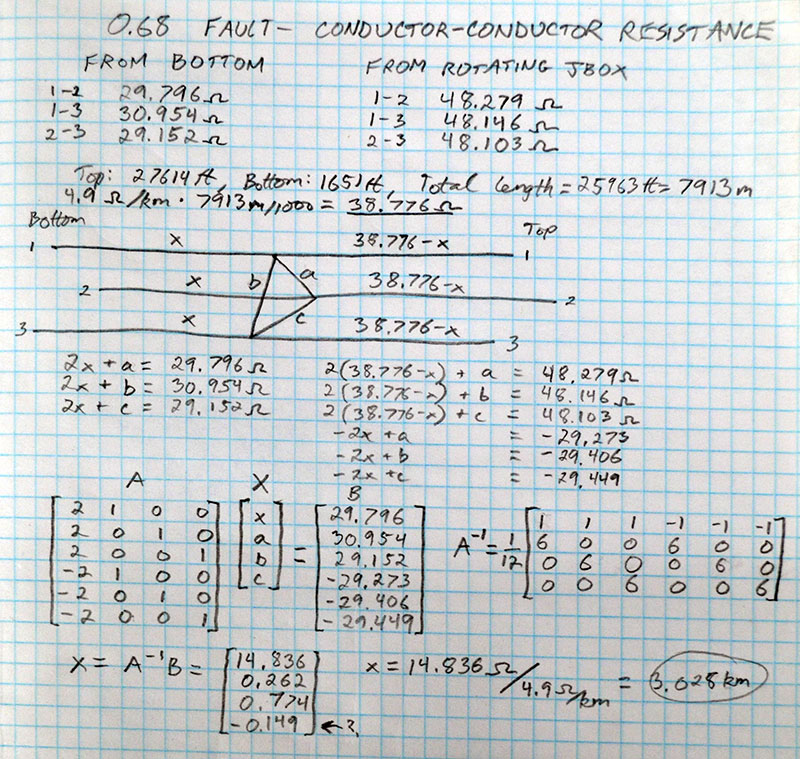 0.68 FAULT- CONDUCTOR-CONDUCTOR RESISTANCE
FROM BOTTOM
1-2 29.796 Ω
1-3 30.954 Ω
2-3 29.152 Ω
FROM ROTATING JBOX
1-2 48.279 Ω
1-3 48.146 Ω
2-3 48.103 Ω
Top: 27614 ft, Bottom: 1651 ft, Total length = 25963 ft = 7913 m
4.9 Ω/km · 7913 m/1000 = 38.776 Ω
Bottom Top
1 x 38.776-x 1
2 x b a 38.776-x 2
3 x c 38.776-x 3
2x + a = 29.796 Ω
2x + b = 30.954 Ω
2x + c = 29.152 Ω
2(38.776-x) + a = 48.279 Ω
2(38.776-x) + b = 48.146 Ω
2(38.776-x) + c = 48.103 Ω
-2x + a = -29.273
-2x + b = -29.406
-2x + c = -29.449
A X B
2 1 0 0
2 0 1 0
2 0 0 1
-2 1 0 0
-2 0 1 0
-2 0 0 1
x
a
b
c
=
29.796
30.954
29.152
-29.273
-29.406
-29.449
A⁻¹ = 1/12
1 1 1 -1 -1 -1
6 0 0 6 0 0
0 6 0 0 6 0
0 0 6 0 0 6
X = A⁻¹B =
14.836
0.262
0.774
-0.149 ←?
x = 14.836 Ω / 4.9 Ω/km = 3.028 km